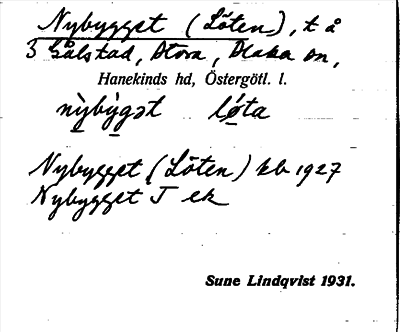 Nybygget (Löten), t å
3 Gålstad, Stora, Slaka sn,
Hanekinds hd, Östergötl. l.
nỳbỳgət lo̗ta
Nybygget (Löten) kb 1927
Nybygget J ek
Sune Lindqvist 1931.